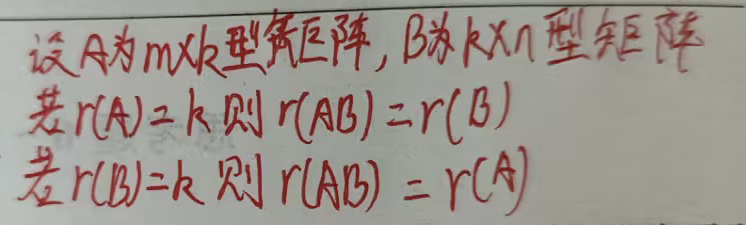 设A为m×k型矩阵,B为k×n型矩阵
若r(A)=k则r(AB)=r(B)
若r(B)=k则r(AB)=r(A)